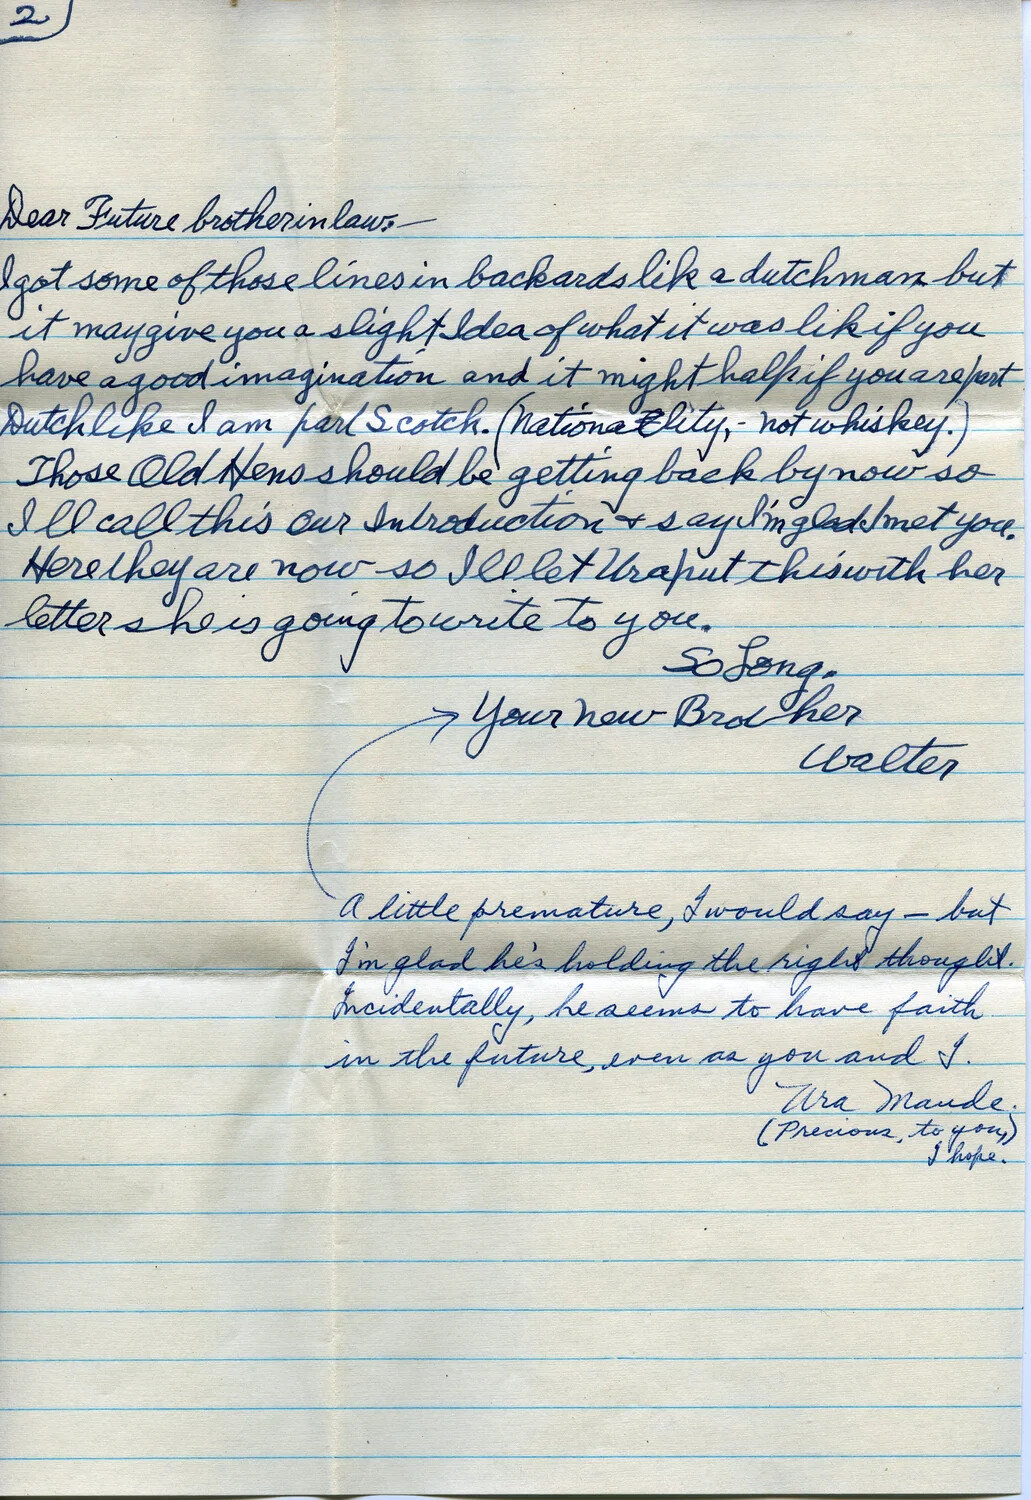 2
Dear Future brotherinlaw:—
I got some of those lines in backards like a dutchman but
it may give you a slight Idea of what it was lik if you
have a good imagination and it might halp if you are part
Dutch like I am part Scotch. (Nationality,- not whiskey.)
Those Old Hens should be getting back by now so
I'll call this our Introduction + say I'm glad I met you.
Here they are now so I'll let Ura put this with her
letter she is going to write to you.
So Long.
Your new Brother
Walter
A little premature, I would say – but
I'm glad he's holding the right thought.
Incidentally, he seems to have faith
in the future, even as you and I.
Ura Maude.
(Precious, to you,)
I hope.